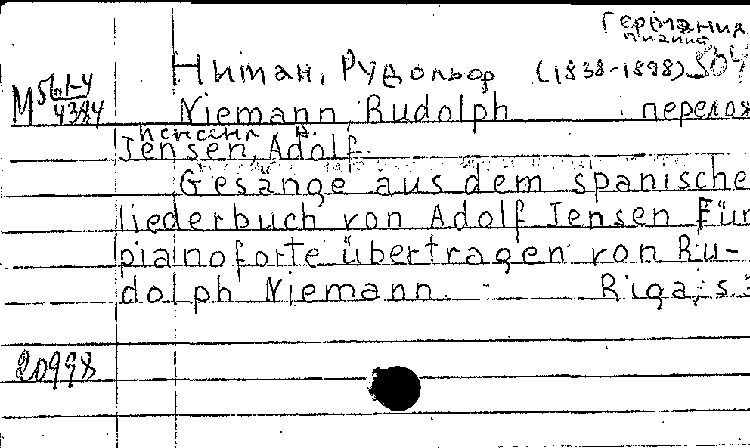 Германия
пианист
Ниман, Рудольф (1838-1898) 804
М 561-4
4384
Niemann, Rudolph перелож
Иенсен А.
Jensen, Adolf.
Gesänge aus dem spanische
liederbuch von Adolf Jensen Für
pianoforte übertragen von Ru-
dolph Niemann. Riga, s.
20998